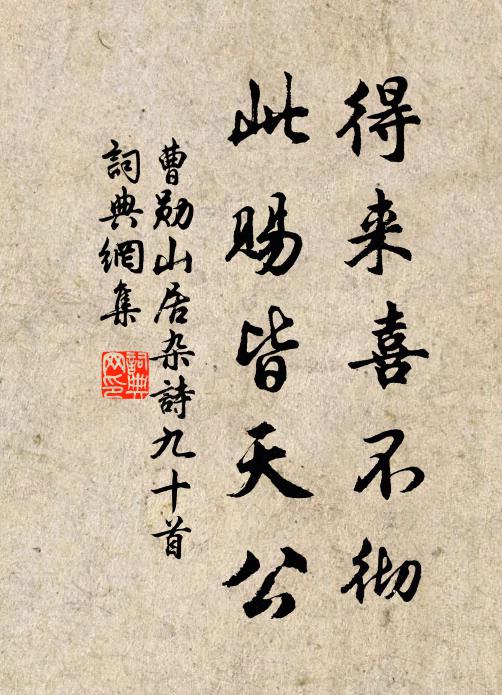 得来喜不彻
此赐皆天公
曹勋山居杂詩九十首
詞典網集
詞典网印